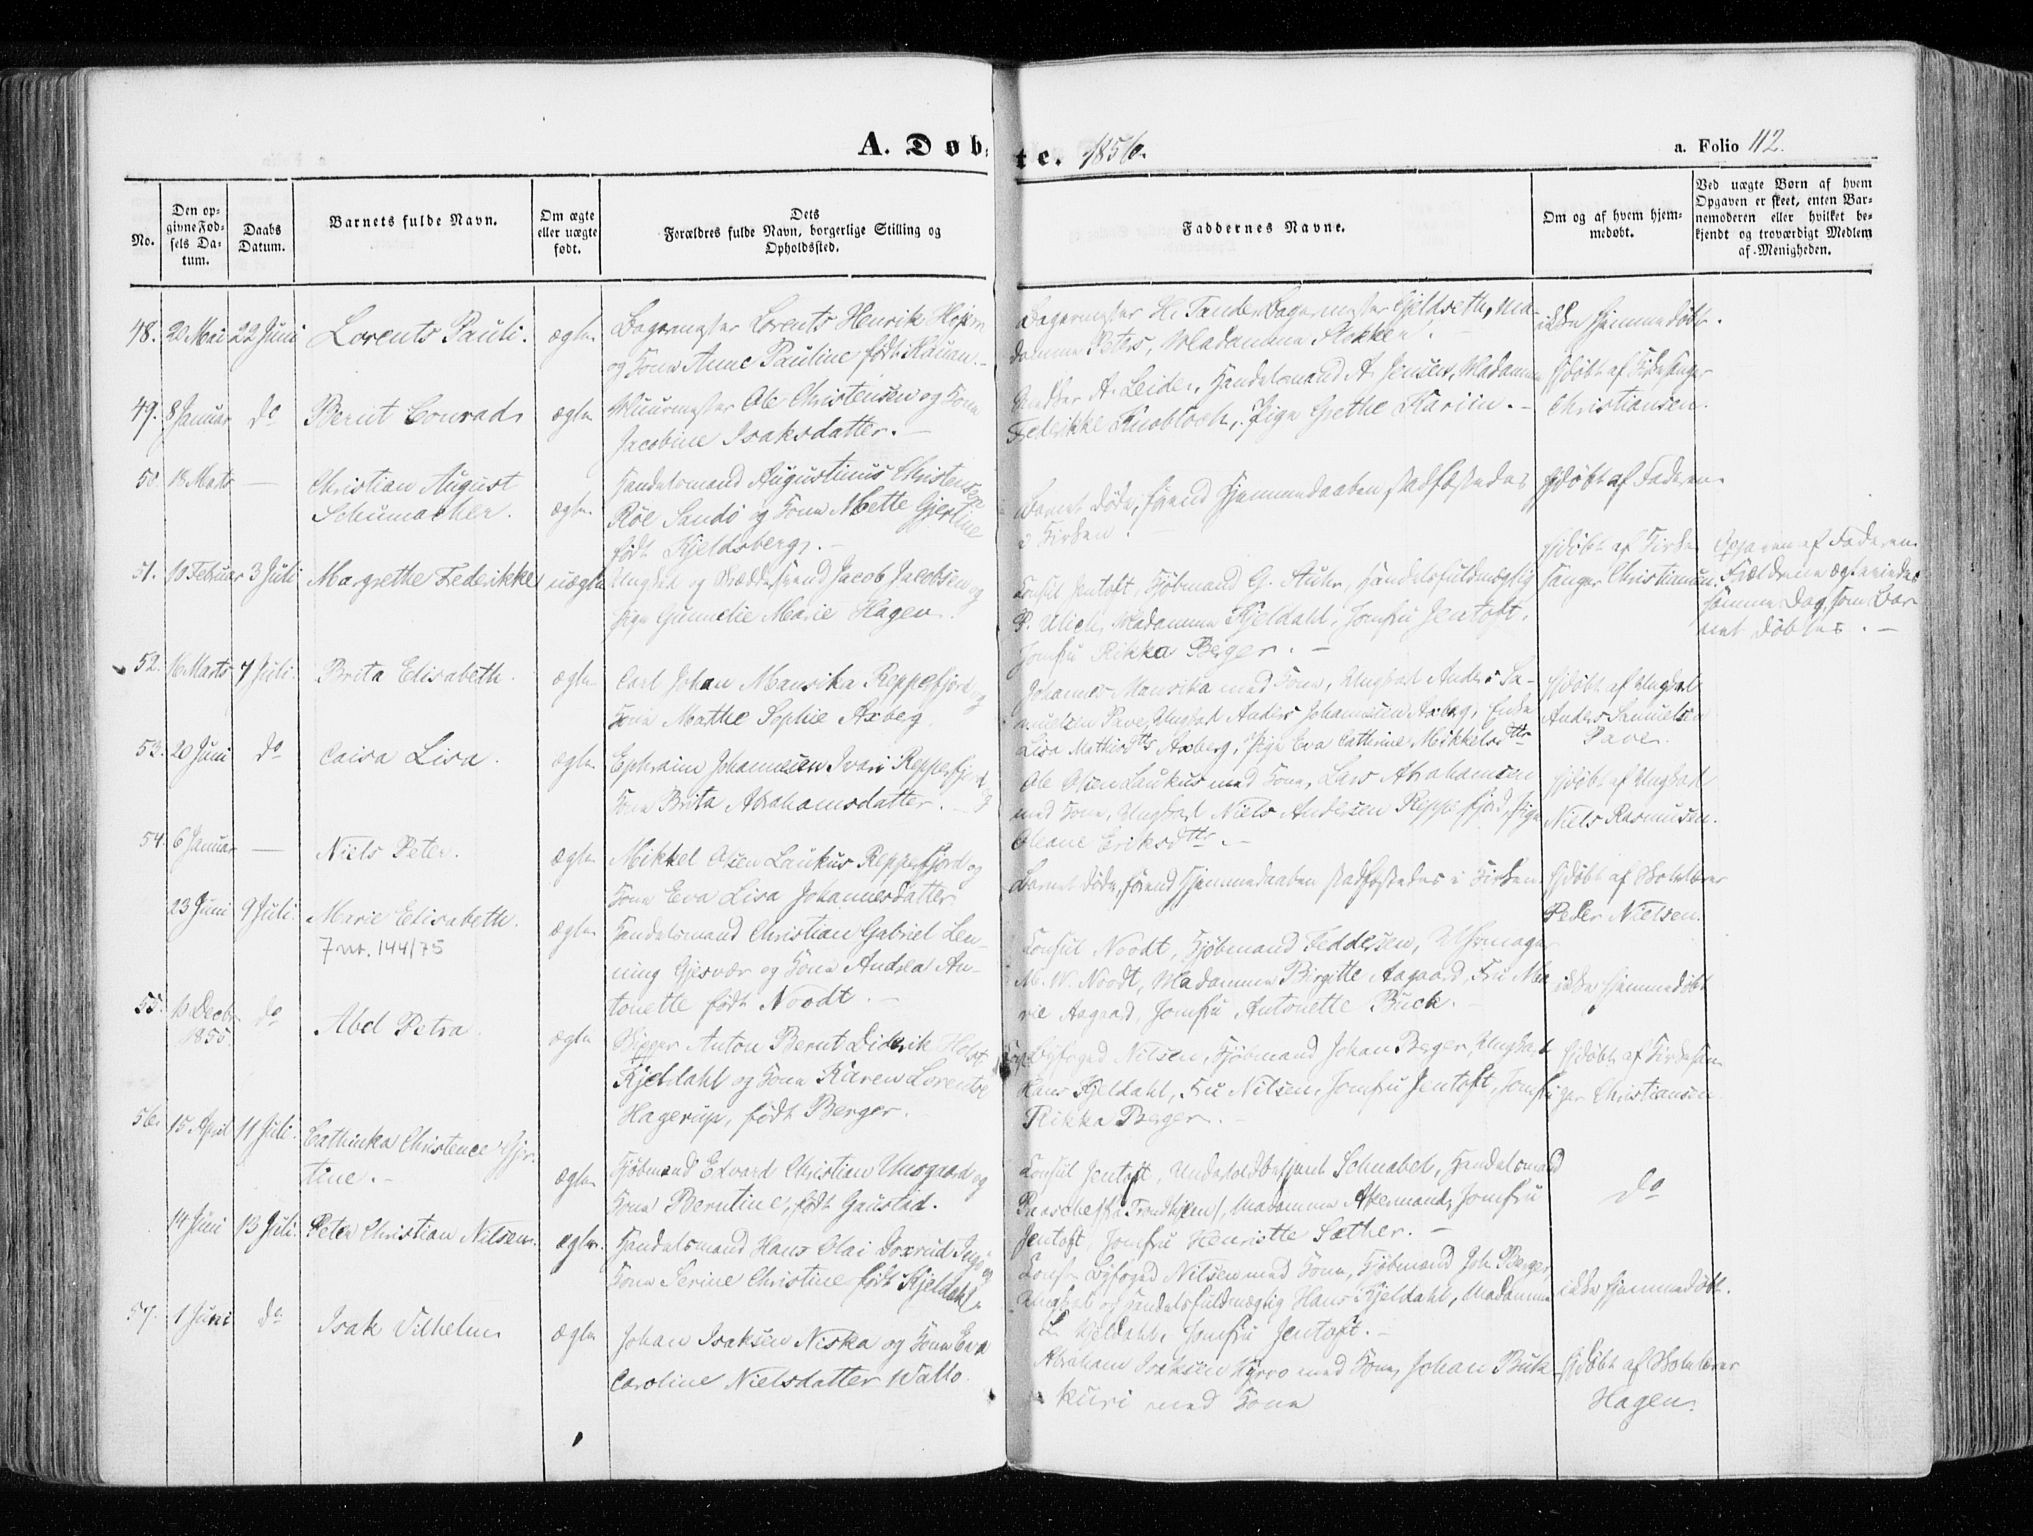 A. Døb-
te. 1856.
a. Folio 112.
No.
Den op-
givne Fød-
sels Da-
tum.
Daabs
Datum.
Barnets fulde Navn.
Om ægte
eller uægte
født.
Dets
Forældres fulde Navn, borgerlige Stilling og
Opholdssted.
Faddernes Navne.
Om og af hvem hjem-
medøbt.
Ved uægte Børn af hvem
Opgaven er skeet, enten Bar-
nemoderen eller hvilket be-
kjendt og troværdigt Medlem
af Menigheden.
48. 20 Mai 22 Juni Lorents Pauli. ægte
Bagermester Lorents Henrik
og Kone Anne Pauline født
Bagermester H. Tande, Bagermester Gjeldseth, Ma-
damme Madamme Flokken.
ikke hjemmedøbt.
49. 8 Januar do Bernt Conrad ægte
Muurmester Ole Christensen og Kone
Jacobine Isaksdatter.
Snedker A. Leider, Handelsmand A. Jensen, Madamme
Fedrikke Knobloch, Pige Grethe Kariin.
hjdøbt af Kirkesanger
Christiansen.
50. 18 Marts — Christian August
Schumacher. ægte
Handelsmand Augustinus Christensen
Röe Sandö og Kone Mette Gjertine
født Kjeldsberg.
Barnet døde, førend Hjemmedaaben stadfæstedes
i Kirken.
hjdøbt af Faderen
51. 10 Februar 3 Juli Margrethe Federikke uægte
Ungkarl og Jacob Jacobsen og
Pige Gunnelie Marie Hagen.
Consul Jentoft, Kjöbmand G. Handelsfuldmægtig
P. Ulich, Madamme Kjeldahl, Jomfru Jentoft,
Jomfru Rikka Berger.
hjdøbt af Kirke
sanger Christiansen.
Opgaven af Faderen.
Forældrene ægteviedes
samme Dag, som Bar-
net døbtes.
52. 16 Marts 7 Juli. Brita Elisabeth. ægte
Carl Johan Mansika Repperfjord og
Kone Mathe Sophie Axberg.
Johannes Mansika med Kone, Ungkarl Anders Sa-
muelsen Pave, Ungkarl Anders Johannesen Axberg, Enke
Lisa Mathisdtr Axberg, Pige Eva Cathrine Mikkelsdtr
hjdøbt af Ungkarl
Anders Samuelsen
Pave.
53. 20 Juni do Caisa Lisa. ægte
Ephraim Johannesen Ivari Repperfjord og
Kone Brita Abrahamsdatter.
Ole Olsen Laukus med Kone, Lars Abrahamsen
med Kone, Ungkarl Niels Andersen Repperfjord, Pige
Oleane Eriksdtr.
hjdøbt af Ungkarl
Niels Rasmusen.
54. 6 Januar — Niels Peter. ægte
Mikkel Olsen Laukus Repperfjord og
Kone Eva Lisa Johannesdatter
Barnet døde, førend Hjemmedaaben stadfæstedes i Kirken
hjdøbt af Skolelærer
Peder Nielsen.
23 Juni 9 Juli. Marie Elisabeth.
7 nr. 144/75 ægte
Handelsmand Christian Gabriel Len-
ning Gjesvær og Kone Andrea An-
tonette født Noodt.
Consul Noodt, Kjöbmand Feddersen, Uhrmager
M. W. Noodt, Madamme Birgitte Aagaard, Fru Ma
rie Aagaard, Jomfru Antonette Buck.
ikke hjemmedøbt
55. 10 Decbr
1855. do Abel Petra. ægte
Skipper Anton Bernt Diderik Holst
Kjeldahl og Kone Karen Lorentze
Hagerup, født Berger.
Byfoged Nilsen, Kjöbmand Johan Berger, Ungkarl
Hans Kjeldahl, Fru Nilsen, Jomfru Jentoft, Jomfru
Rikka Berger.
hjdøbt af Kirkesan-
ger Christiansen.
56. 15 April 11 Juli. Cathinka Christence Gjer-
tine. ægte
Kjöbmand Edvard Christian Unsgaard og
Kone Berntine, født Gaustad.
Consul Jentoft, Underfoldbetjent Schnabel, Handelsmand
Paasche (fra Trondhjem), Madamme Akermand, Jomfru
Jentoft, Jomfru Henriette Sæther.
do
14 Juni 13 Juli. Peter Christian Nilsen. ægte.
Handelsmand Hans Olai Ingö og
Kone Serine Christine født Kjeldahl.
Byfoged Nilsen med Kone, Kjöbmand Joh. Berger,
Ungkarl og Handelsfuldmægtig Hans Kjeldahl, Madamme
Jomfru Jentoft.
ikke hjemmedøbt.
57. 1 Juni do Isak Vilhelm ægte
Johan Isaksen Niska og Kone Eva
Caroline Nielsdatter Wallo.
Abraham Isaksen Kyrro med Kone, Johan Buk-
kuri med Kone
hjdøbt af Skolelærer
Hagen.